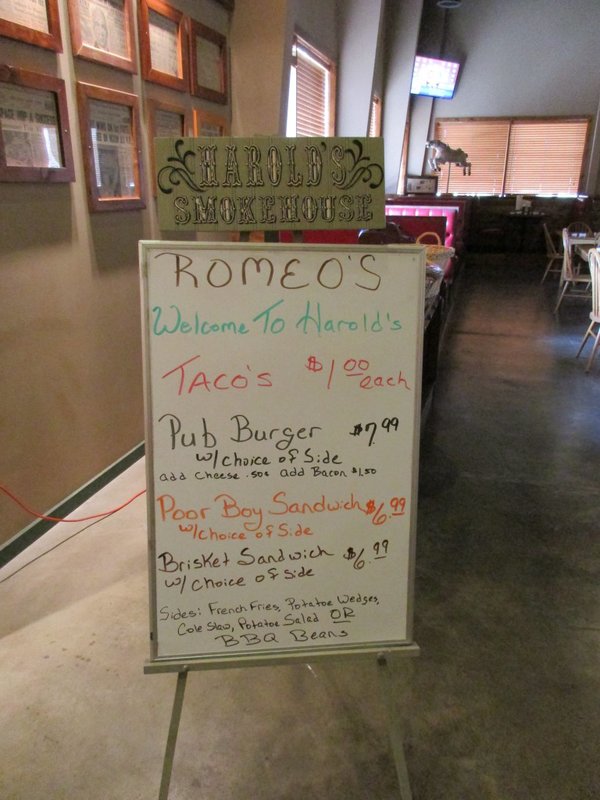 HAROLD'S
SMOKEHOUSE
ROMEO'S
Welcome To Harold's
TACO'S $1.00 each
Pub Burger $7.99
w/choice of Side
add cheese .50¢ add Bacon $1.50
Poor Boy Sandwich $6.99
w/choice of Side
Brisket Sandwich $6.99
w/choice of Side
Sides: French Fries, Potatoe Wedges,
Cole Slaw, Potatoe Salad OR
BBQ Beans